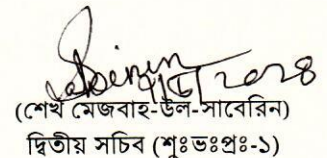 ২০২৪
(শেখ মেজবাহ-উল-সাবেরিন)
দ্বিতীয় সচিব (শুঃভঃপ্রঃ-১)